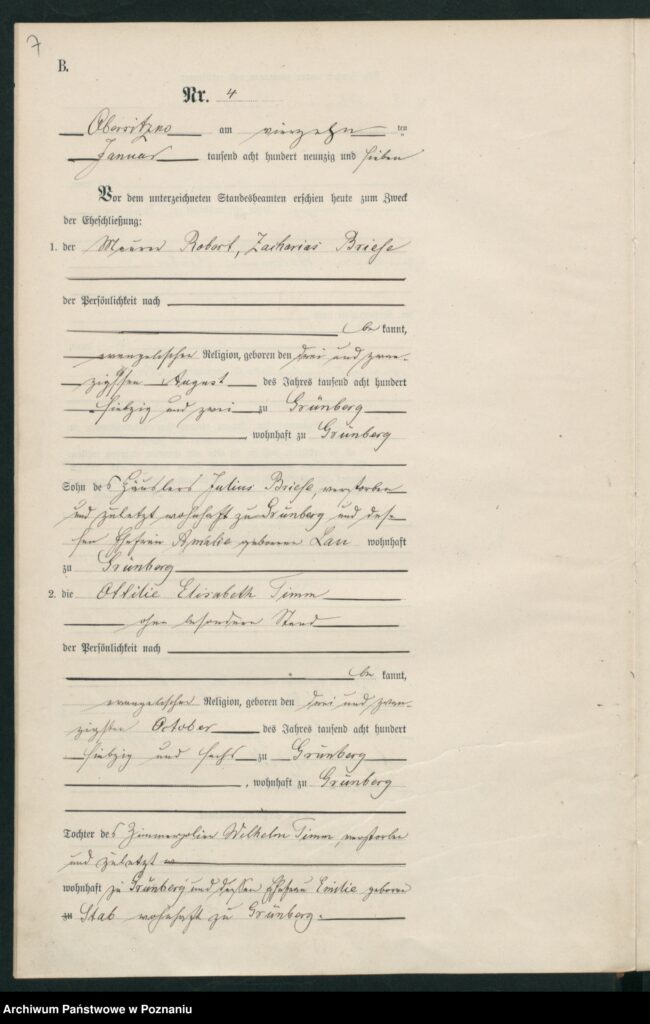 7
B.
Nr. 4
Obersitzko am vierzehn ten
Januar tausend acht hundert neunzig und sieben
Vor dem unterzeichneten Standesbeamten erschien heute zum Zweck
der Eheschließung:
1. der Maurer Robert, Zacharias Briese
der Persönlichkeit nach
be kannt,
evangelischer Religion, geboren den drei und zwan-
zigsten August des Jahres tausend acht hundert
siebzig und zwei zu Grünberg
, wohnhaft zu Grünberg
Sohn des Häuslers Julius Briese, verstorben
und zuletzt wohnhaft zu Grünberg und des-
sen Ehefrau Amalie geborene Lau wohnhaft
zu Grünberg
2. die Ottilie Elisabeth Timm
ohne besonderen Stand
der Persönlichkeit nach
be kannt,
evangelischer Religion, geboren den drei und zwan-
zigsten October des Jahres tausend acht hundert
siebzig und sechs zu Grünberg
, wohnhaft zu Grünberg
Tochter des Zimmerpolier Wilhelm Timm, verstorben
und zuletzt
wohnhaft zu Grünberg und dessen Ehefrau Emilie geborene
zu Stab wohnhaft zu Grünberg.
Archiwum Państwowe w Poznaniu